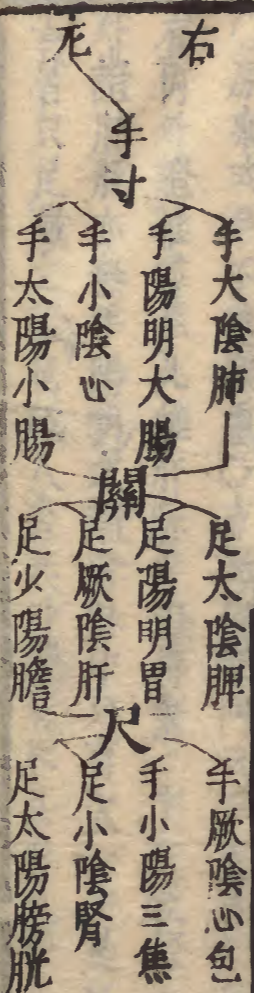 右
左
手寸
手大陰肺
手陽明大腸
手小陰心
手太陽小腸
關
足太陰脾
足陽明胃
足厥陰肝
足少陽膽
尺
手厥陰心包
手小陽三焦
足小陰腎
足太陽膀胱